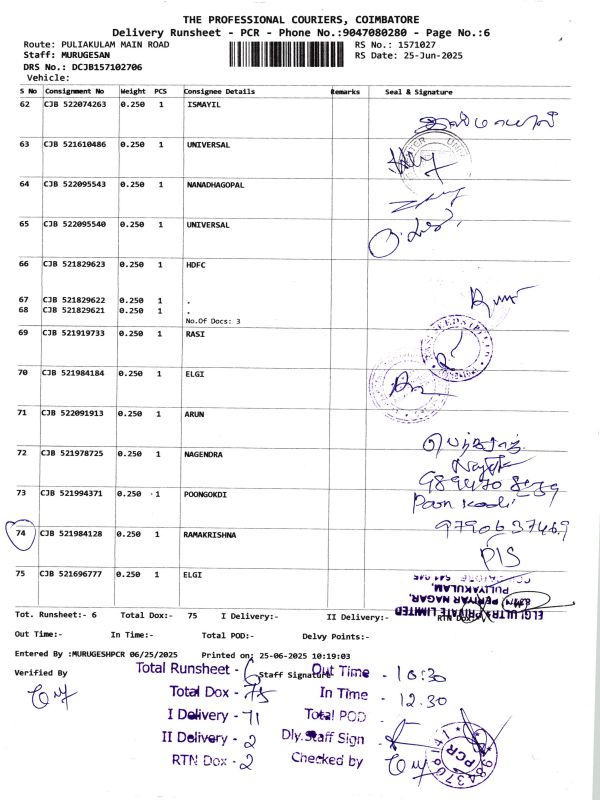 THE PROFESSIONAL COURIERS, COIMBATORE
Delivery Runsheet - PCR - Phone No.:9047080280 - Page No.:6
Route: PULIAKULAM MAIN ROAD RS No.: 1571027
Staff: MURUGESAN RS Date: 25-Jun-2025
DRS No.: DCJB157102706
Vehicle:
S No Consignment No Weight PCS Consignee Details Remarks Seal & Signature
62 CJB 522074263 0.250 1 ISMAYIL
63 CJB 521610486 0.250 1 UNIVERSAL
64 CJB 522095543 0.250 1 NANADHAGOPAL
65 CJB 522095540 0.250 1 UNIVERSAL
66 CJB 521829623 0.250 1 HDFC
67 CJB 521829622 0.250 1 .
68 CJB 521829621 0.250 1 .
No.Of Docs: 3
69 CJB 521919733 0.250 1 RASI
70 CJB 521984184 0.250 1 ELGI
71 CJB 522091913 0.250 1 ARUN
72 CJB 521978725 0.250 1 NAGENDRA
73 CJB 521994371 0.250 1 POONGOKDI
9790637469
74 CJB 521984128 0.250 1 RAMAKRISHNA
PIS
75 CJB 521696777 0.250 1 ELGI
PULIYAKULAM,
PERIYAR NAGAR,
ELGI ULTRA PRIVATE LIMITED
Tot. Runsheet:- 6 Total Dox:- 75 I Delivery:- II Delivery:- RTN Dox:-
Out Time:- In Time:- Total POD:- Delvy Points:-
Entered By :MURUGESHPCR 06/25/2025 Printed on: 25-06-2025 10:19:03
Verified By Staff Signature
Total Runsheet - 6 Out Time - 10:30
Total Dox - 75 In Time - 12.30
I Delivery - 71 Total POD -
II Delivery - 2 Dly. Staff Sign
RTN Dox - 2 Checked by
PCR